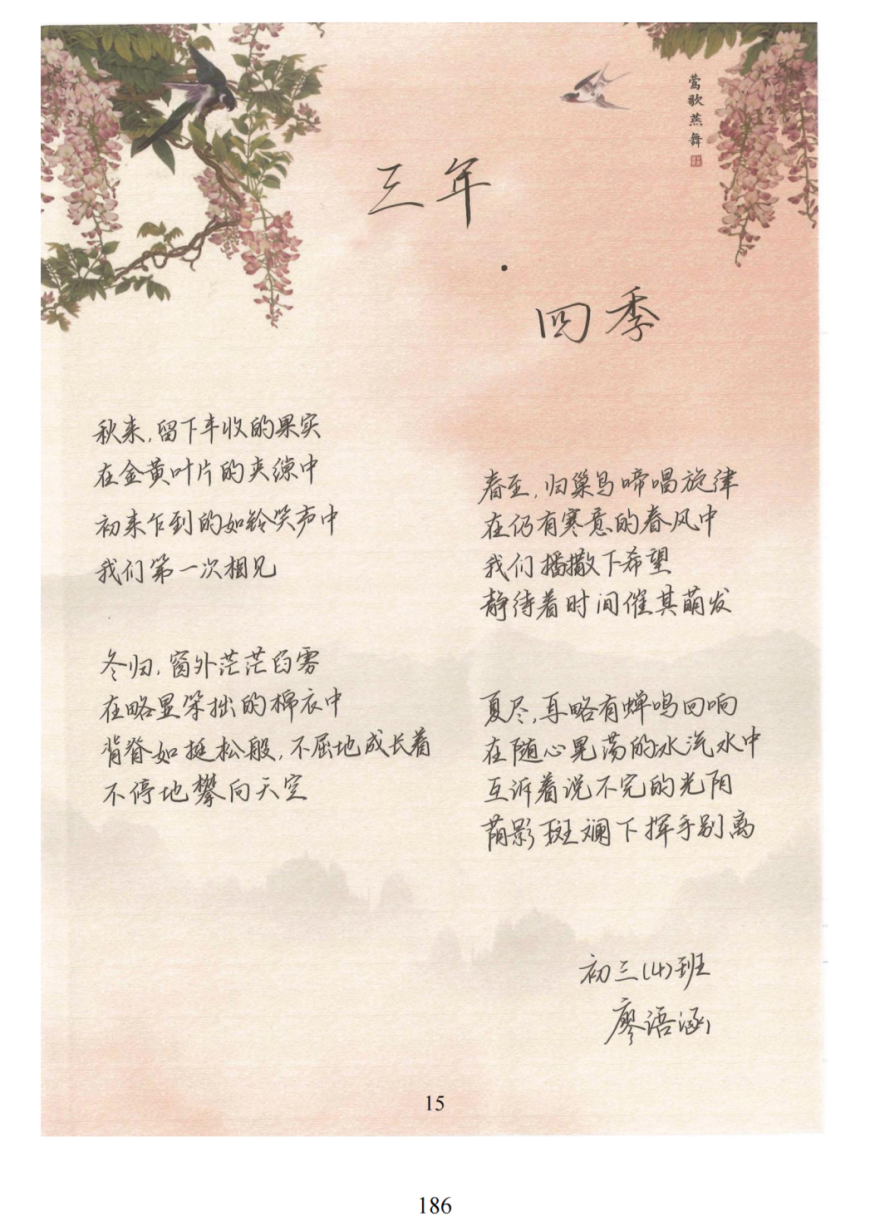 莺歌燕舞
三年
·
四季
秋来,留下丰收的果实
在金黄叶片的夹缘中
初来乍到的如铃笑声中
我们第一次相见
冬归,窗外茫茫白雾
在略显笨拙的棉衣中
背脊如挺松般,不屈地成长着
不停地攀向天空
春至,归巢鸟啼唱旋律
在仍有寒意的春风中
我们播撒下希望
静待着时间催其萌发
夏尽,再略有蝉鸣回响
在随心晃荡的水流水中
互诉着说不完的光阴
荫影斑斓下挥手别离
初三(4)班
廖语涵
15
186